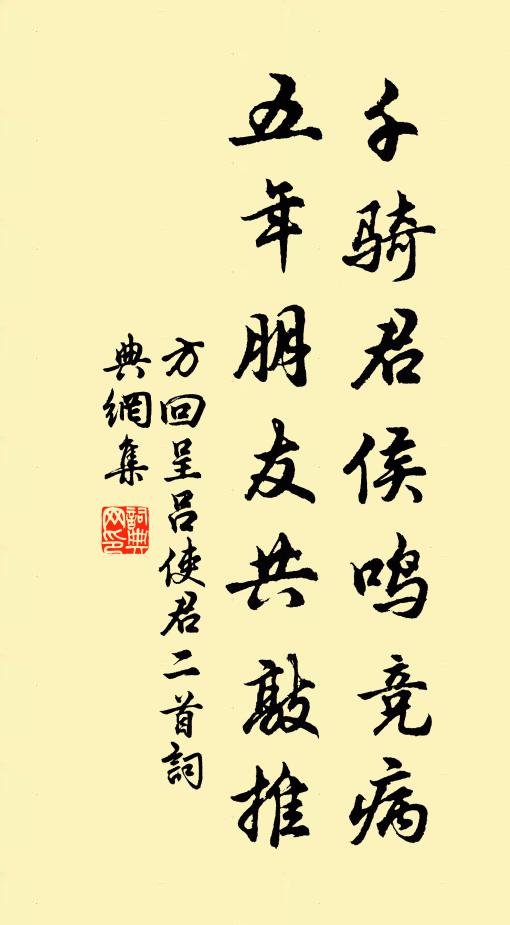 千骑君侯鸣竞病
五年朋友共敲推
方回呈吕使君二首詞
典網集
詞典
网印